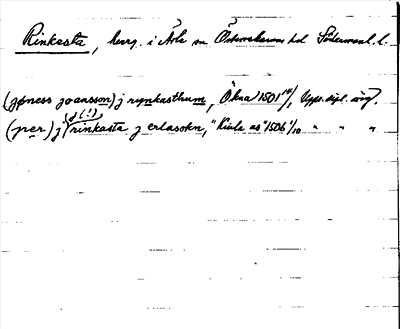 Rinkasta, herrg. i Ärla sn Österrekarne hd Södermanl. l.
(jøness joansson) j rynkasthum, Ökna 1501 14/1, Upps. dipl. avg.
(per) j (j(!)) rinkasta j erlasokn, "Kiula as" 1506 1/10 " " "